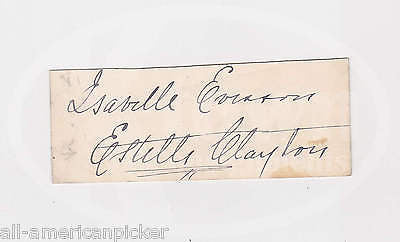 Isabelle Evesson
Estelle Clayton
all-americanpicker